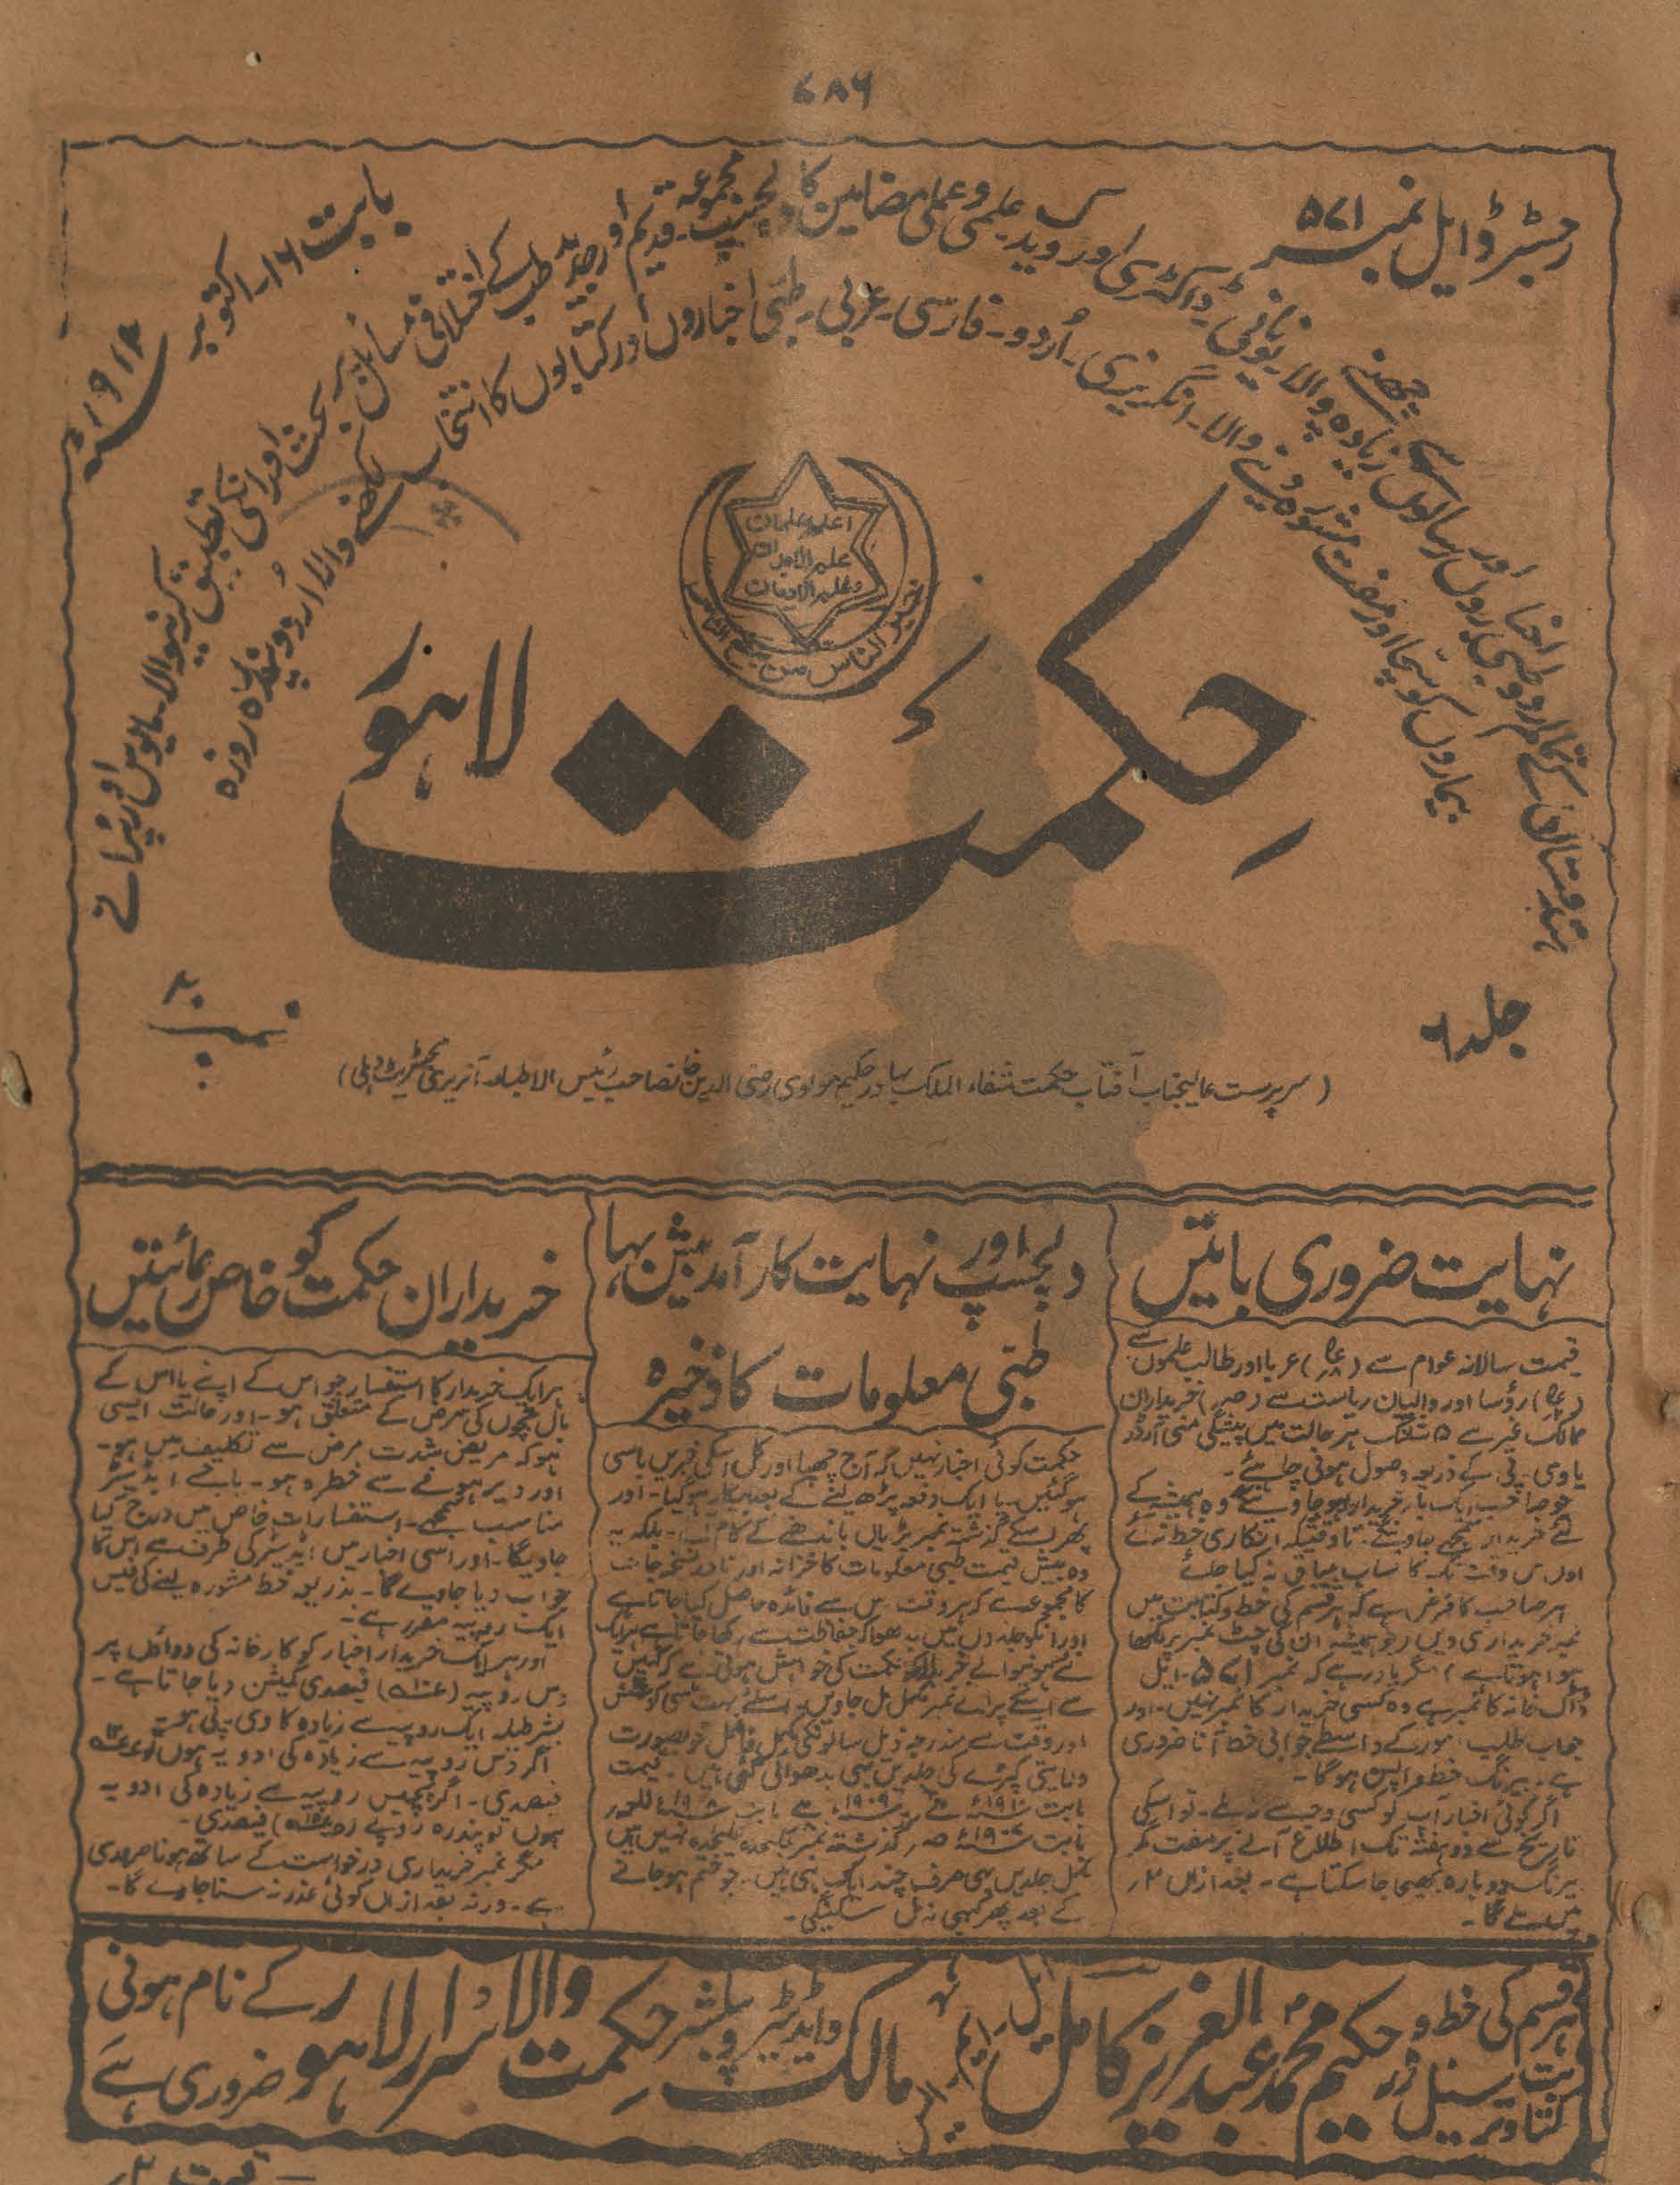 ۷۸۶
رجسٹرڈ ایل نمبر ۵۷۱
بابت ۱۶ اکتوبر
ہندوستان کے تمام اردو طبی اخباروں اور رسالوں سے زیادہ چھپنے والا یونانی ڈاکٹری اور ویدک علمی و عملی مضامین کا دلچسپ مجموعہ ۔ قدیم اور جدید طب کے اختلافی مسائل پر بحث اور انکی تطبیق کرنیوالا ۔ مایوس اور پرانے
بیماروں کو سچا اور مفت مشورہ دینے والا ۔ انگریزی ۔ اُردو ۔ فارسی ۔ عربی ۔ طبی اخباروں اور کتابوں کا انتخاب رکھنے والا اُردو پندرہ روزہ
علم الابدان
وعلم الادیان
خیر الناس من ینفع الناس
حِکمت لاہور
جلد ۶
نمبر ۲۰
(سرپرست عالیجناب آفتاب حکمت شفاء الملک بہادر حکیم مولوی رضی الدین خانصاحب رئیس الاطباء آنریری مجسٹریٹ دہلی)
نہایت ضروری باتیں
قیمت سالانہ عوام سے غربا اور طالب علموں سے
رؤسا اور والیان ریاست سے خریداران
ممالک غیر سے ۵ شلنگ ہر حالت میں پیشگی منی آرڈر
یا وی ۔ پی کے ذریعہ وصول ہونی چاہئے ۔
جو صاحب ایک بار خریدار ہو جاوینگے وہ ہمیشہ کے
لئے خریدار سمجھے جاوینگے ۔ تاوقتیکہ انکاری خط نہ آئے
اور اس وقت تک کا حساب بیباق نہ کیا جائے
ہر صاحب کا فرض ہے کہ ہر قسم کی خط و کتابت میں
نمبر خریداری دیں (جو ہمیشہ ان کی چٹ نمبر پر لکھا
ہوا ہوتا ہے) مگر یاد رہے کہ نمبر ۵۷۱ ۔ ایل
ڈاک خانہ کا نمبر ہے وہ کسی خریدار کا نمبر نہیں ۔ اور
جواب طلب امور کے واسطے جوابی خط آنا ضروری
ہے ۔ بیرنگ خط واپس ہوگا ۔
اگر کوئی اخبار آپ کو کسی وجہ سے نہ ملے ۔ تو اسکی
تاریخ سے دو ہفتہ تک اطلاع آنے پر مفت مگر
بیرنگ دوبارہ بھیجا جا سکتا ہے ۔ بعد ازاں ۲ر
میں ملے گا ۔
دلچسپ اور نہایت کارآمد بیش بہا
طبی معلومات کا ذخیرہ
حکمت کوئی اخبار نہیں کہ آج چھپا اور کل اسکی خبریں باسی
ہو گئیں ۔ یا ایک دفعہ پڑھ لینے کے بعد بیکار ہو گیا ۔ اور
پھر اسکے گذشتہ نمبر پڑیاں باندھنے کے کام آئے ۔ بلکہ یہ
وہ بیش قیمت طبی معلومات کا خزانہ اور نادر نسخہ جات
کا مجموعہ ہے کہ ہر وقت اس سے فائدہ حاصل کیا جاتا ہے
اور انکو جلدوں میں بندھوا کر حفاظت سے رکھا جاتا ہے ہر ایک
نئے ہونیوالے خریدار حکمت کی خواہش ہوتی ہے کہ کہیں
سے اسکے پرانے نمبر مکمل مل جاویں ۔ اسلئے بہت سی کوشش
اور وقت سے مندرجہ ذیل سالونکی مکمل فائل خوبصورت
ولایتی کپڑے کی جلدیں بھی بندھوائی گئی ہیں ۔ قیمت
علیحدہ علیحدہ نہیں ہیں
مکمل جلدیں بھی صرف چند ایک ہی ہیں ۔ جو ختم ہو جانے
کے بعد پھر کبھی نہ مل سکینگی ۔
خریداران حکمت کو خاص رعائتیں
ہر ایک خریدار کا استفسار جو اس کے اپنے یا اس کے
بال بچوں کی مرض کے متعلق ہو ۔ اور حالت ایسی
ہو کہ مریض شدت مرض سے تکلیف میں ہو ۔
اور دیر ہونے سے خطرہ ہو ۔ بائے ایڈیٹر
مناسب سمجھے ۔ استفسارات خاص میں درج کیا
جاویگا ۔ اور اسی اخبار میں ایڈیٹر کی طرف سے اس کا
جواب دیا جاویگا ۔ بذریعہ خط مشورہ لینے کی فیس
ایک روپیہ مقرر ہے ۔
اور ہر ایک خریدار اخبار کو کارخانہ کی دوائوں پر
دس روپیہ فیصدی کمیشن دیا جاتا ہے ۔
بشرطیکہ ایک روپیہ سے زیادہ کا وی ۔ پی ہو ۔
اگر دس روپیہ سے زیادہ کی ادویہ ہوں تو
فیصدی ۔ اگر پچیس روپیہ سے زیادہ کی ادویہ
ہوں تو پندرہ روپے فیصدی ۔
مگر نمبر خریداری درخواست کے ساتھ ہونا ضروری
ہے ۔ ورنہ بعد ازاں کوئی عذر نہ سنا جاوے گا ۔
ہر قسم کی خط و کتابت و ترسیل زر حکیم محمد عبد العزیز کامل مالک و ایڈیٹر و پبلشر حکمت والاسرار لاہور کے نام ہونی ضروری ہے